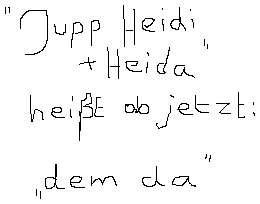 "Jupp Heidi
+ Heida"
heißE ab jetzt:
„dem da"